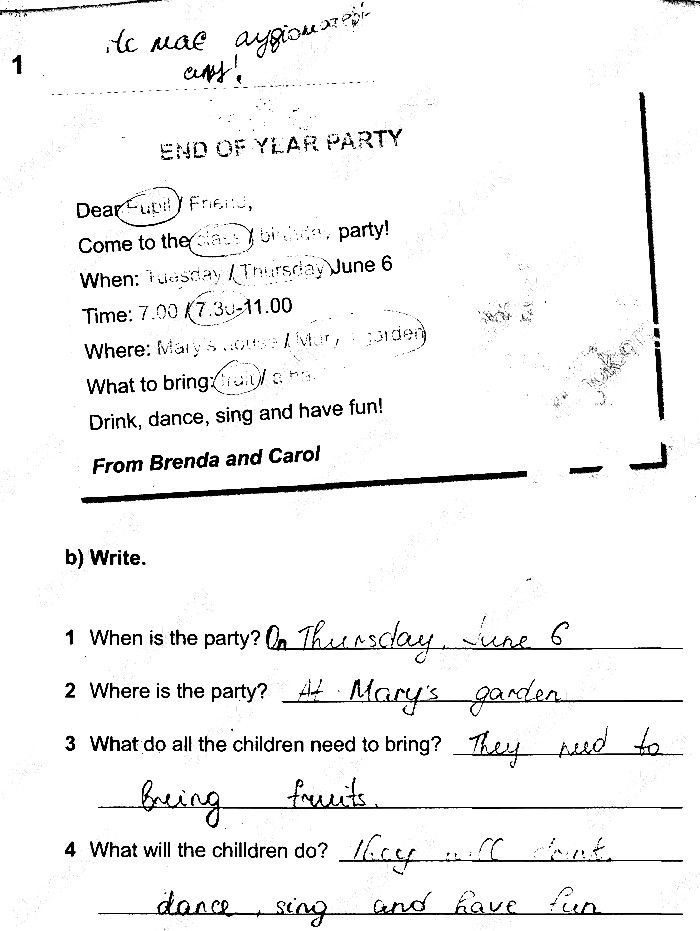 1
END OF YEAR PARTY
Dear Pupil / Friend,
Come to the class / birthday party!
When: Tuesday / Thursday June 6
Time: 7.00 / 7.30-11.00
Where: Mary's house / Mary's garden
What to bring: fruit /
Drink, dance, sing and have fun!
From Brenda and Carol
b) Write.
1 When is the party? On Thursday, June 6
2 Where is the party? At Mary's garden
3 What do all the children need to bring? They need to
bring fruits.
4 What will the chilldren do? They will drink,
dance, sing and have fun